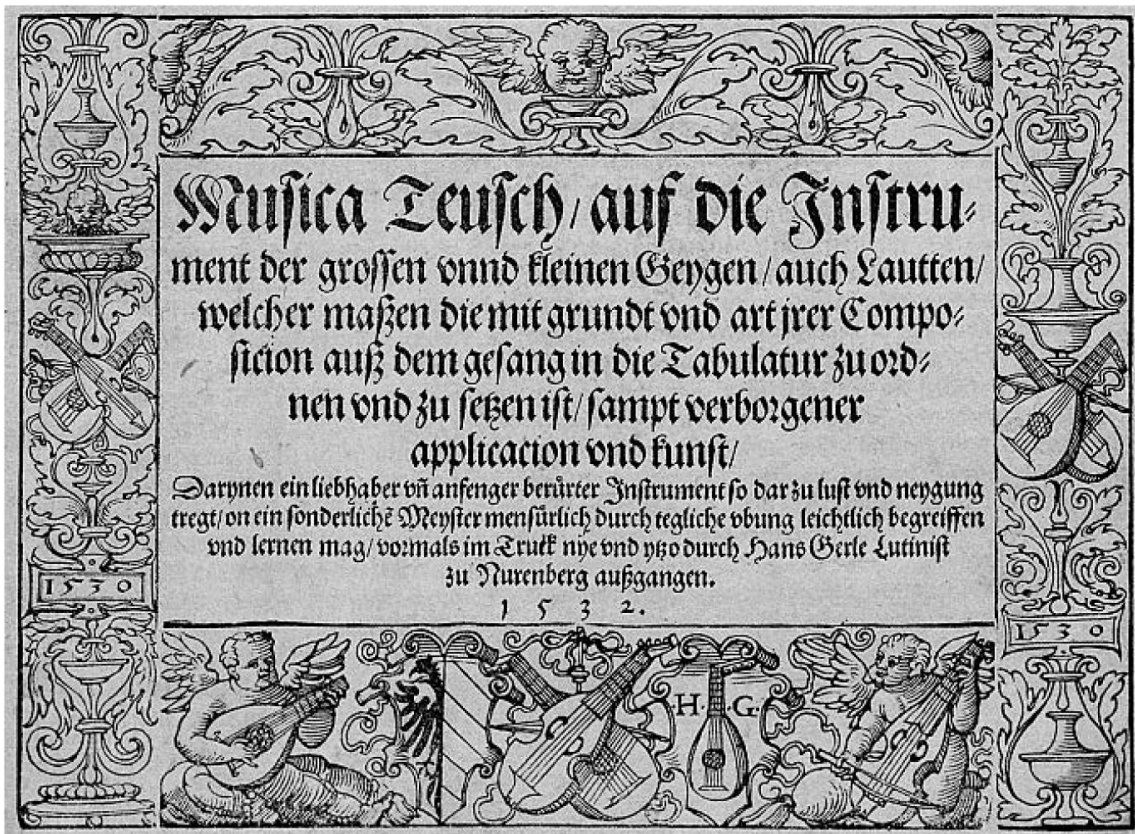 Musica Teusch/ auf die Instru-
ment der grossen vnnd kleinen Geygen/ auch Lautten/
welcher maßen die mit grundt vnd art jrer Compo-
sicion auß dem gesang in die Tabulatur zu ord-
nen vnd zu setzen ist/ sampt verborgener
applicacion vnd kunst/
Darynnen ein liebhaber vñ anfenger berürter Instrument so dar zu lust vnd neygung
tregt/ on ein sonderlichẽ Meyster mensürlich durch tegliche vbung leichtlich begreiffen
vnd lernen mag/ vormals im Truck nye vnd ytzo durch Hans Gerle Lutinist
zu Nurenberg außgangen.
1 5 3 2.
1530
1530
H. G.